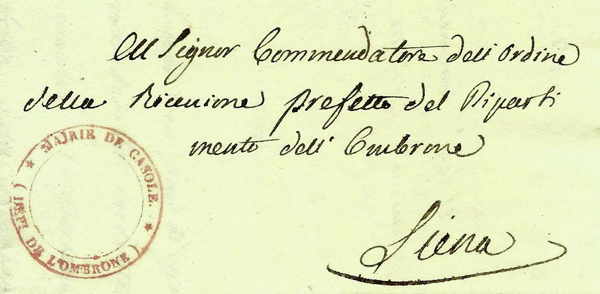 All Signor Commendatore dell'Ordine
della Riunione prefetto del Diparti
mento dell'Ombrone
Siena
* MAIRIE DE CASOLE. *
( DEPT. DE L'OMBRONE )